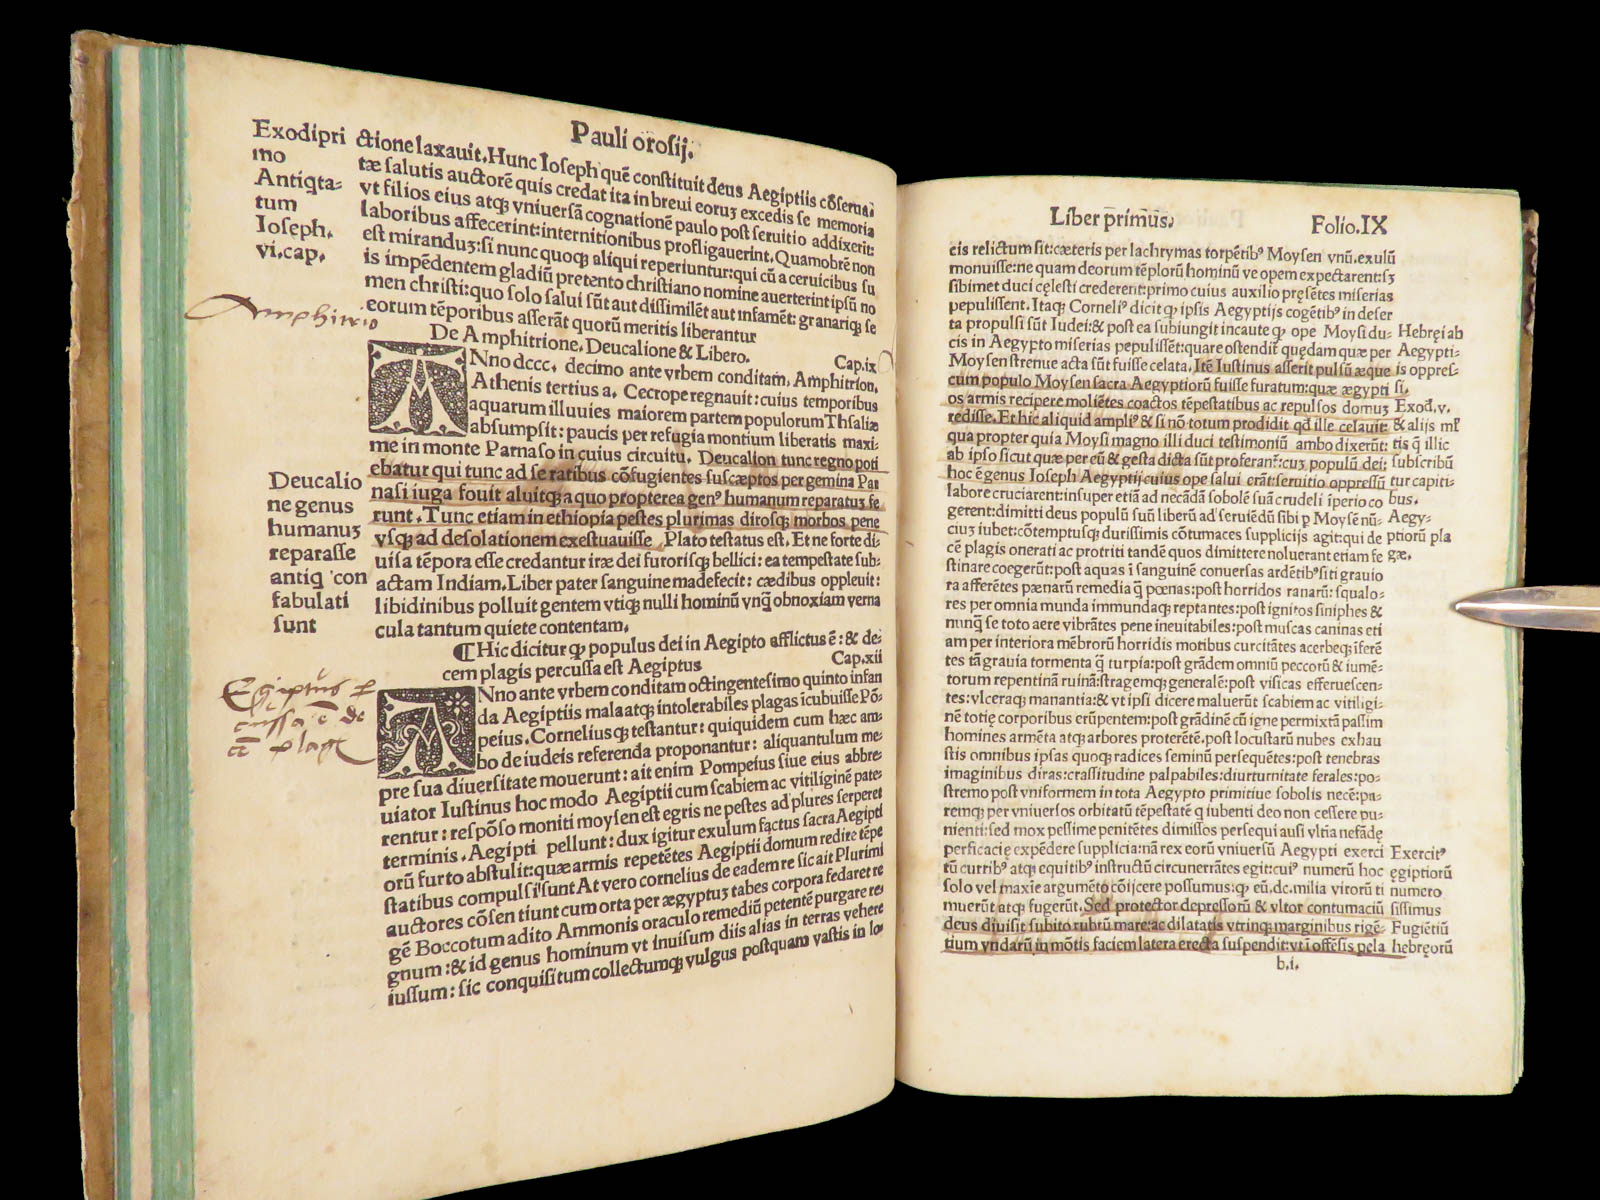 Pauli orosij.
Exodi pri
mo
Antiqta-
tum
Ioseph.
vi.cap.
ctione laxauit. Hunc Ioseph quē constituit deus Aegiptiis cōserua
tæ salutis auctorē quis credat ita in breui eoruꝫ excedis se memoria
vt filios eius atqꝫ vniuersā cognationē paulo post seruitio addixerit:
laboribus affecerint: internitionibus profligauerint. Quamobrē non
est miranduꝫ: si nunc quoqꝫ aliqui reperiuntur: qui cū a ceruicibus su
is impēdentem gladiū pretento christiano nomine auerterint ipsū no
men christi: quo solo salui sūt aut dissimilēt aut infamēt: granariqꝫ se
eorum tēporibus asserāt quorū meritis liberantur
Amphitrio
De Amphitrione. Deucalione & Libero. Cap.ix
ANno dccc. decimo ante vrbem conditam. Amphitrion.
Athenis tertius a. Cecrope regnauit: cuius temporibus
aquarum illuuies maiorem partem populorum Thsaliæ
absumpsit: paucis per refugia montium liberatis maxi-
me in monte Parnaso in cuius circuitu. Deucalion tunc regno poti
ebatur qui tunc ad se ratibus cōfugientes suscæptos per gemina Par
nasi iuga fouit aluitqꝫ a quo propterea genꝰ humanum reparatuꝫ fe
runt. Tunc etiam in ethiopia pestes plurimas dirosqꝫ morbos pene
vsqꝫ ad desolationem exestuauisse Plato testatus est. Et ne forte di-
uisa tēpora esse credantur iræ dei furorisqꝫ bellici: ea tempestate sub-
actam Indiam. Liber pater sanguine madefecit: cædibus oppleuit:
libidinibus polluit gentem vtiqꝫ nulli hominū vnq̄ obnoxiam verna
cula tantum quiete contentam.
Deucalio
ne genus
humanuꝫ
reparasse
antiq con
fabulati
sunt
¶ Hic dicitur qꝫ populus dei in Aegipto afflictus ē: & de-
cem plagis percussa est Aegiptus Cap.xii
Egiptus p
cussa ē de
cē plag
ANno ante vrbem conditam octingentesimo quinto infan
da Aegiptiis mala atqꝫ intolerabiles plagas īcubuisse Pō-
peius. Corneliusqꝫ testantur: quiquidem cum hæc am-
bo de iudeis referenda proponantur: aliquantulum me-
pre sua diuersitate mouerunt: ait enim Pompeius siue eius abbre-
uiator Iustinus hoc modo Aegiptii cum scabiem ac vitiliginē pate-
rentur: respōso moniti moysen est egris ne pestes ad plures serperet
terminis. Aegipti pellunt: dux igitur exulum factus sacra Aegipti
orū furto abstulit: quæ armis repetētes Aegiptii domum redire tēpe
statibus compulsi sunt At vero cornelius de eadem re sic ait Plurimi
auctores cōsentiunt cum orta per ægyptuꝫ tabes corpora fedaret re
gē Boccotum adito Ammonis oraculo remediū petentē purgare re
gnum: & id genus hominum vt inuisum diis alias in terras vehere
iussum: sic conquisitum collectumqꝫ vulgus postquam vastis in lo
Liber primus. Folio.IX
cis relictum sit: cæteris per lachrymas torpētibꝰ Moysen vnū.exulū
monuisse: ne quam deorum tēplorū hominū ve opem expectarent: sꝫ
sibimet duci cęlesti crederent: primo cuius auxilio pręsētes miserias
pepulissent. Itaqꝫ Corneliꝰ dicit qꝫ ipsis Aegyptijs cogētibꝰ in deser
ta propulsi sūt Iudei: & post ea subiungit incaute qꝫ ope Moysi du-
cis in Aegypto miserias pepulissēt: quare ostendit quędam quæ per
Moysen strenue acta sūt fuisse celata. Itē Iustinus asserit pulsū æque
cum populo Moysen sacra Aegyptiorū fuisse furatum: quæ ægypti
os armis recipere moliētes coactos tēpestatibus ac repulsos domuꝫ
redisse. Et hic aliquid ampliꝰ & si nō totum prodidit qd ille celauit
qua propter quia Moysi magno illi duci testimoniū ambo dixerūt:
ab ipso sicut quæ per eū & gesta dicta sūt proferant: cuꝫ populū dei:
hoc ē genus Ioseph Aegyptij cuius ope salui erāt: seruitio oppressū
labore cruciarent: insuper etiā ad necādā sobolē suā crudeli īperio co
gerent: dimitti deus populū suū liberū ad seruiēdū sibi p Moysē nū-
ciuꝫ iubet: cōtemptusqꝫ durissimis cōtumaces supplicijs agit: qui de
cē plagis onerati ac protriti tandē quos dimittere noluerant etiam fe
stinare coegerūt: post aquas ī sanguinē conuersas ardētibꝰ siti grauio
ra afferētes pænarū remedia q̄ pœnas: post horridos ranarū: squalo-
res per omnia munda immundaqꝫ reptantes: post ignitos siniphes &
nunq̄ se toto aere vibrātes pene ineuitabiles: post muscas caninas eti
am per interiora mēbrorū horridis motibus curcitātes acerbeqꝫ īferē
tes tā grauia tormenta q̄ turpia: post grādem omniū peccorū & iumē-
torum repentinā ruinā: stragemqꝫ generalē: post visicas efferuescen-
tes: vlceraqꝫ manantia: & vt ipsi dicere maluerūt scabiem ac vitiligi-
nē totię corporibus erūpentem: post grādinē cū igne permixtā passim
homines armēta atqꝫ arbores proterētē: post locustarū nubes exhau
stis omnibus ipsas quoqꝫ radices seminū persequētes: post tenebras
imaginibus diras: crassitudine palpabiles: diurturnitate ferales: po-
stremo post vniformem in tota Aegypto primitiuę sobolis necē: pa-
remqꝫ per vniuersos orbitatū tēpestatē q iubenti deo non cessere pu-
nienti: sed mox pessime penitētes dimissos persequi ausi vltīa nefādę
perficacię expēdere supplicia: nā rex eorū vniuersū Aegypti exerci
tū curribꝰ atqꝫ equitibꝰ instructū circunerrātes egit: cuiꝰ numerū hoc
solo vel maxīe argumēto cōijcere possumus: qꝫ eū.dc.milia virorū ti
muerūt atqꝫ fugerūt. Sed protector depressorū & vltor contumaciū
deus diuisit subito rubrū mare: ac dilatatis vtrinqꝫ marginibus rigē-
tium vndarū in mōtis faciem latera erecta suspendit: vtū offēsis pela
Hebręi ab
Aegypti-
is oppres-
si.
Exod.v.
& alijs ml̄
tis q̄ illic
subscribū
tur capiti-
bus.
Aegy-
ptiorū pla
gæ.
Exercitꝰ
ęgiptiorū
numero
sissimus
Fugiētiū
hebręorū
b.i.